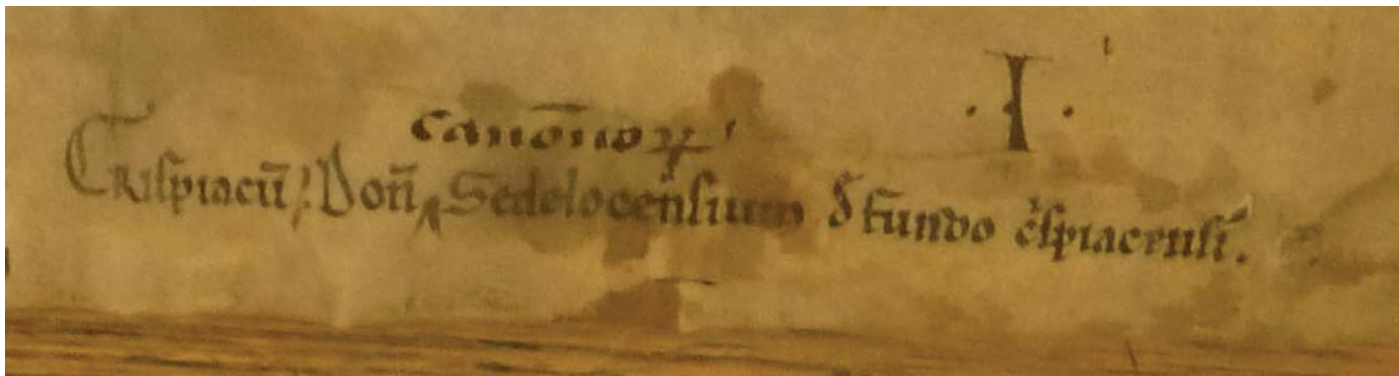 ·I·
canōnoꝝ
Crispiacū: Doñ Sedelocensium đ fundo c̾spiacensi.